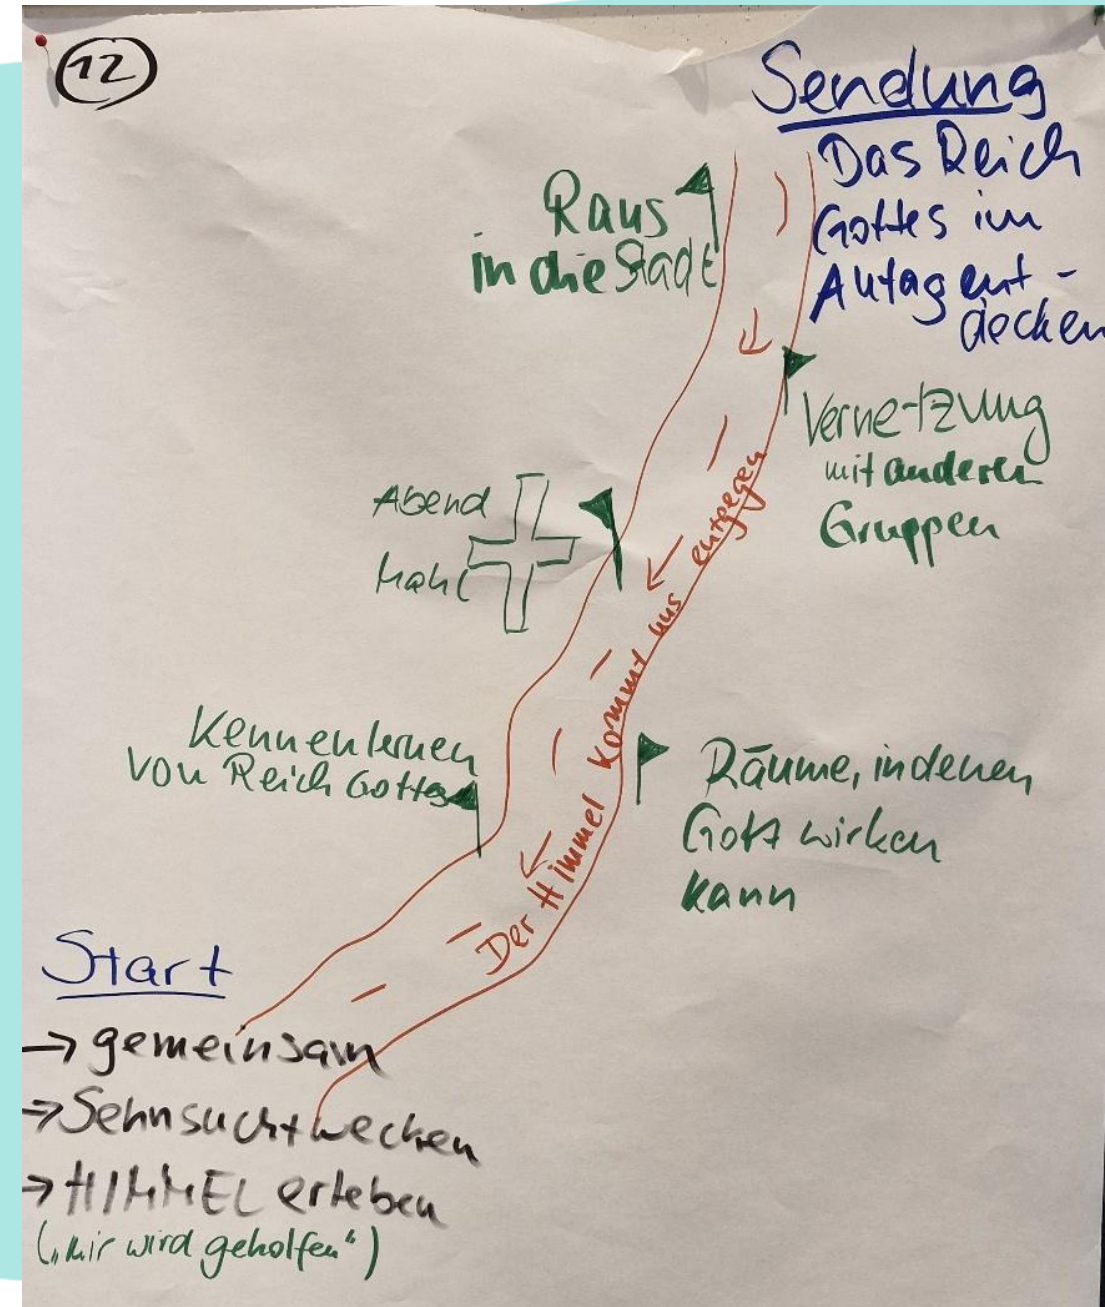 12
Sendung
Das Reich
Gottes im
Alltag ent-
decken
Raus
in die Stadt
Vernetzung
mit anderen
Gruppen
Abend
Mahl
Der Himmel kommt uns entgegen
Kennenlernen
von Reich Gottes
Räume, in denen
Gott wirken
kann
Start
→ gemeinsam
→ Sehnsucht wecken
→ HIMMEL erleben
(„Mir wird geholfen“)